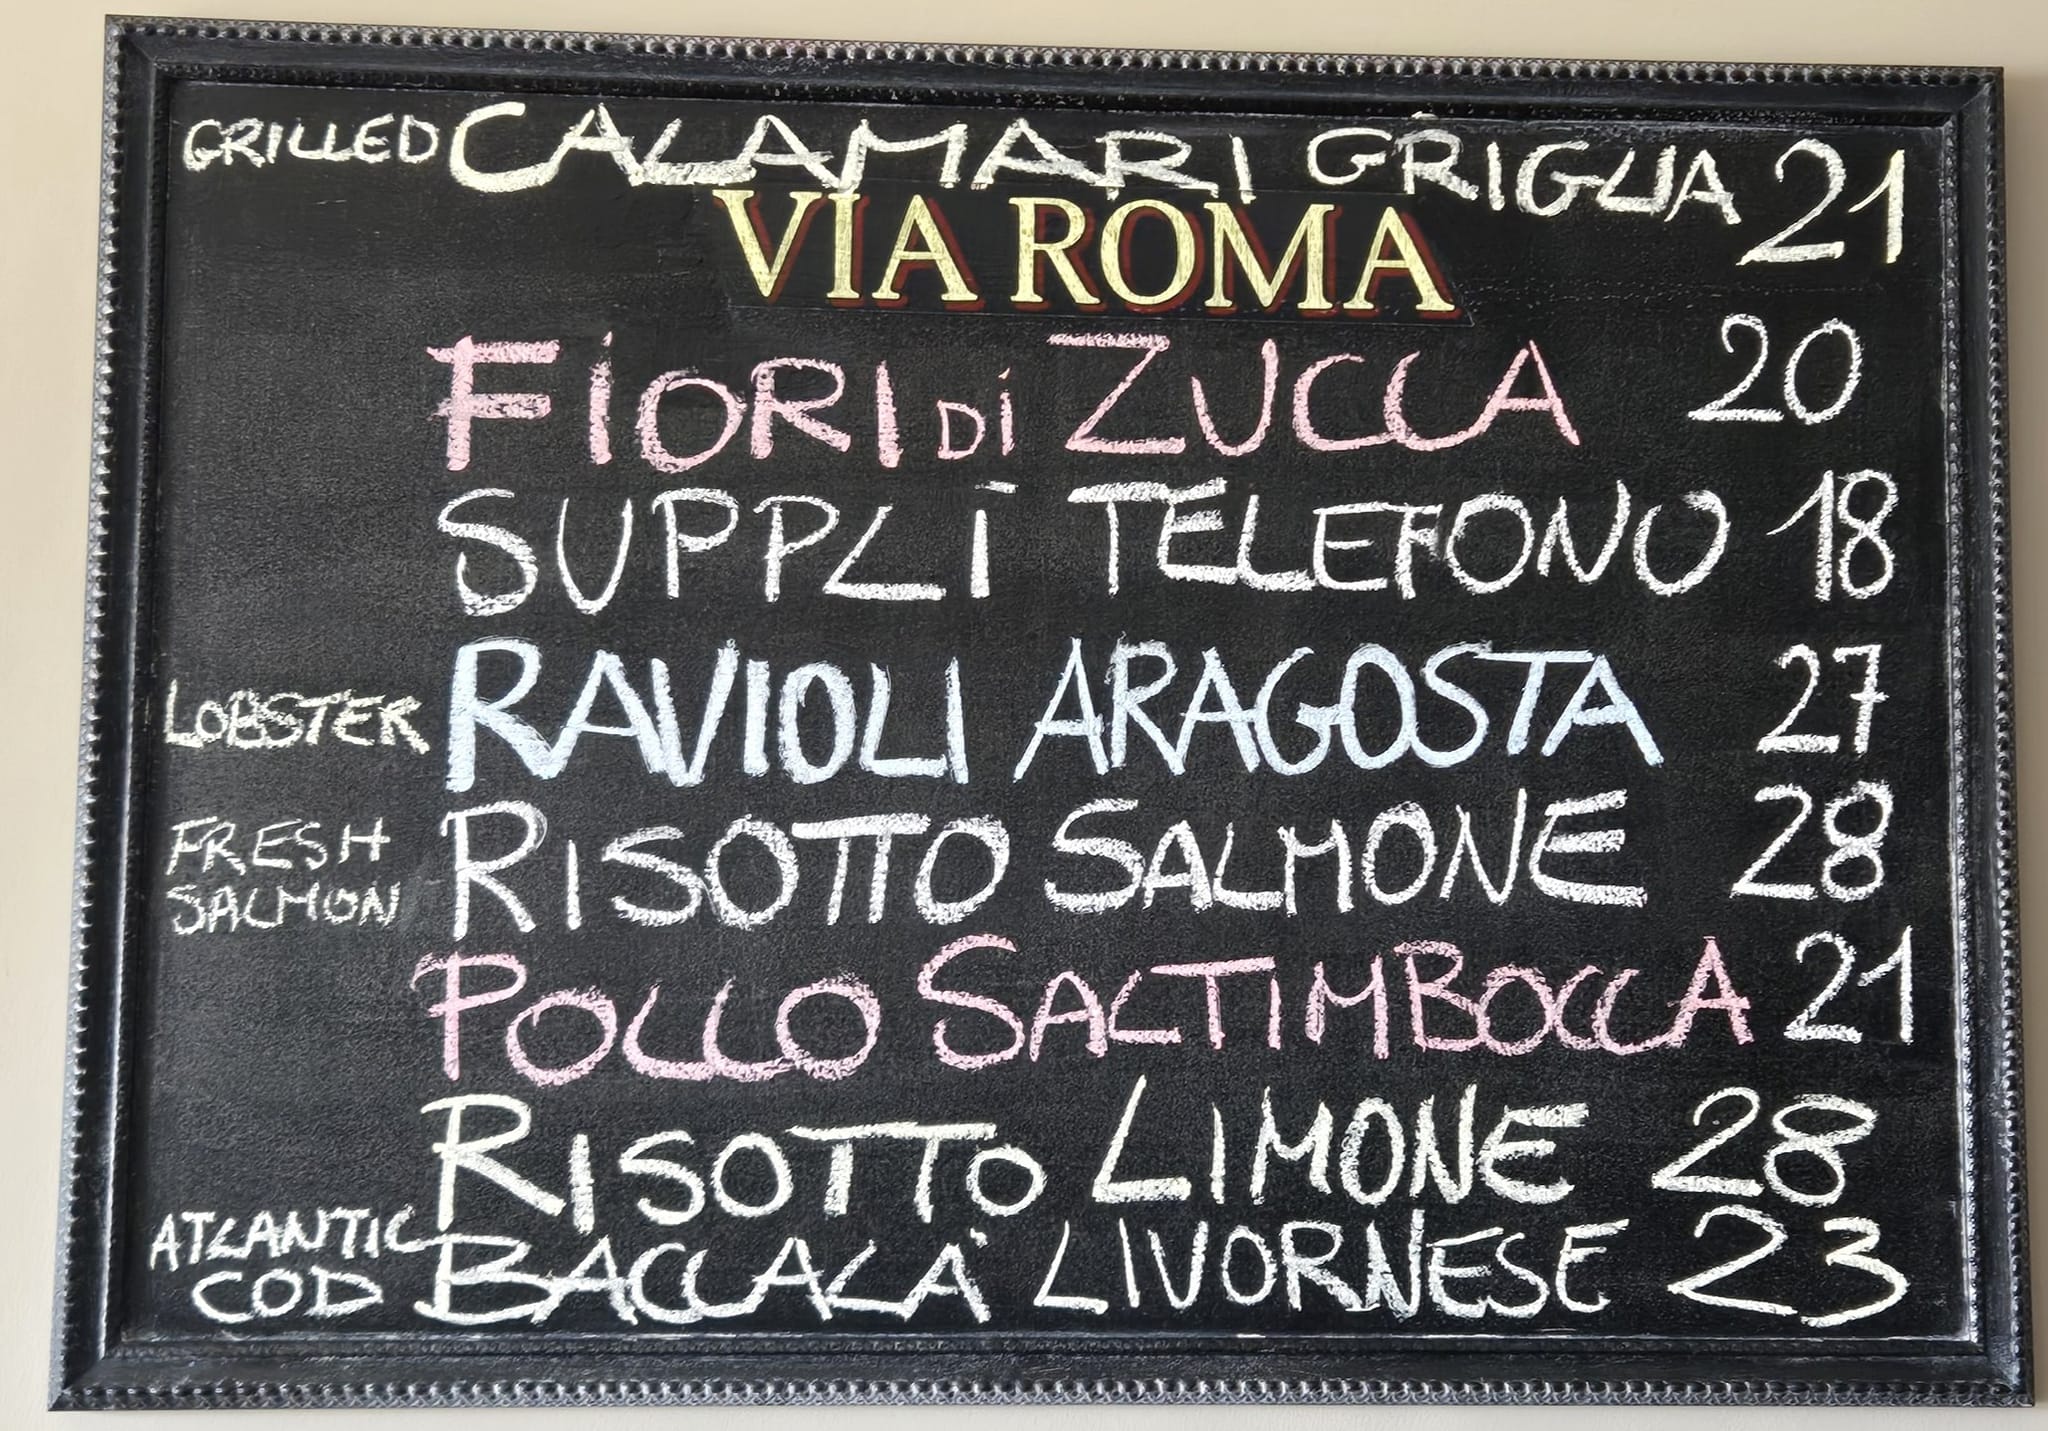 GRILLED CALAMARI GRIGLIA 21
VIA ROMA
FIORI DI ZUCCA 20
SUPPLÌ TELEFONO 18
LOBSTER RAVIOLI ARAGOSTA 27
FRESH SALMON RISOTTO SALMONE 28
POLLO SALTIMBOCCA 21
RISOTTO LIMONE 28
ATLANTIC COD BACCALA' LIVORNESE 23